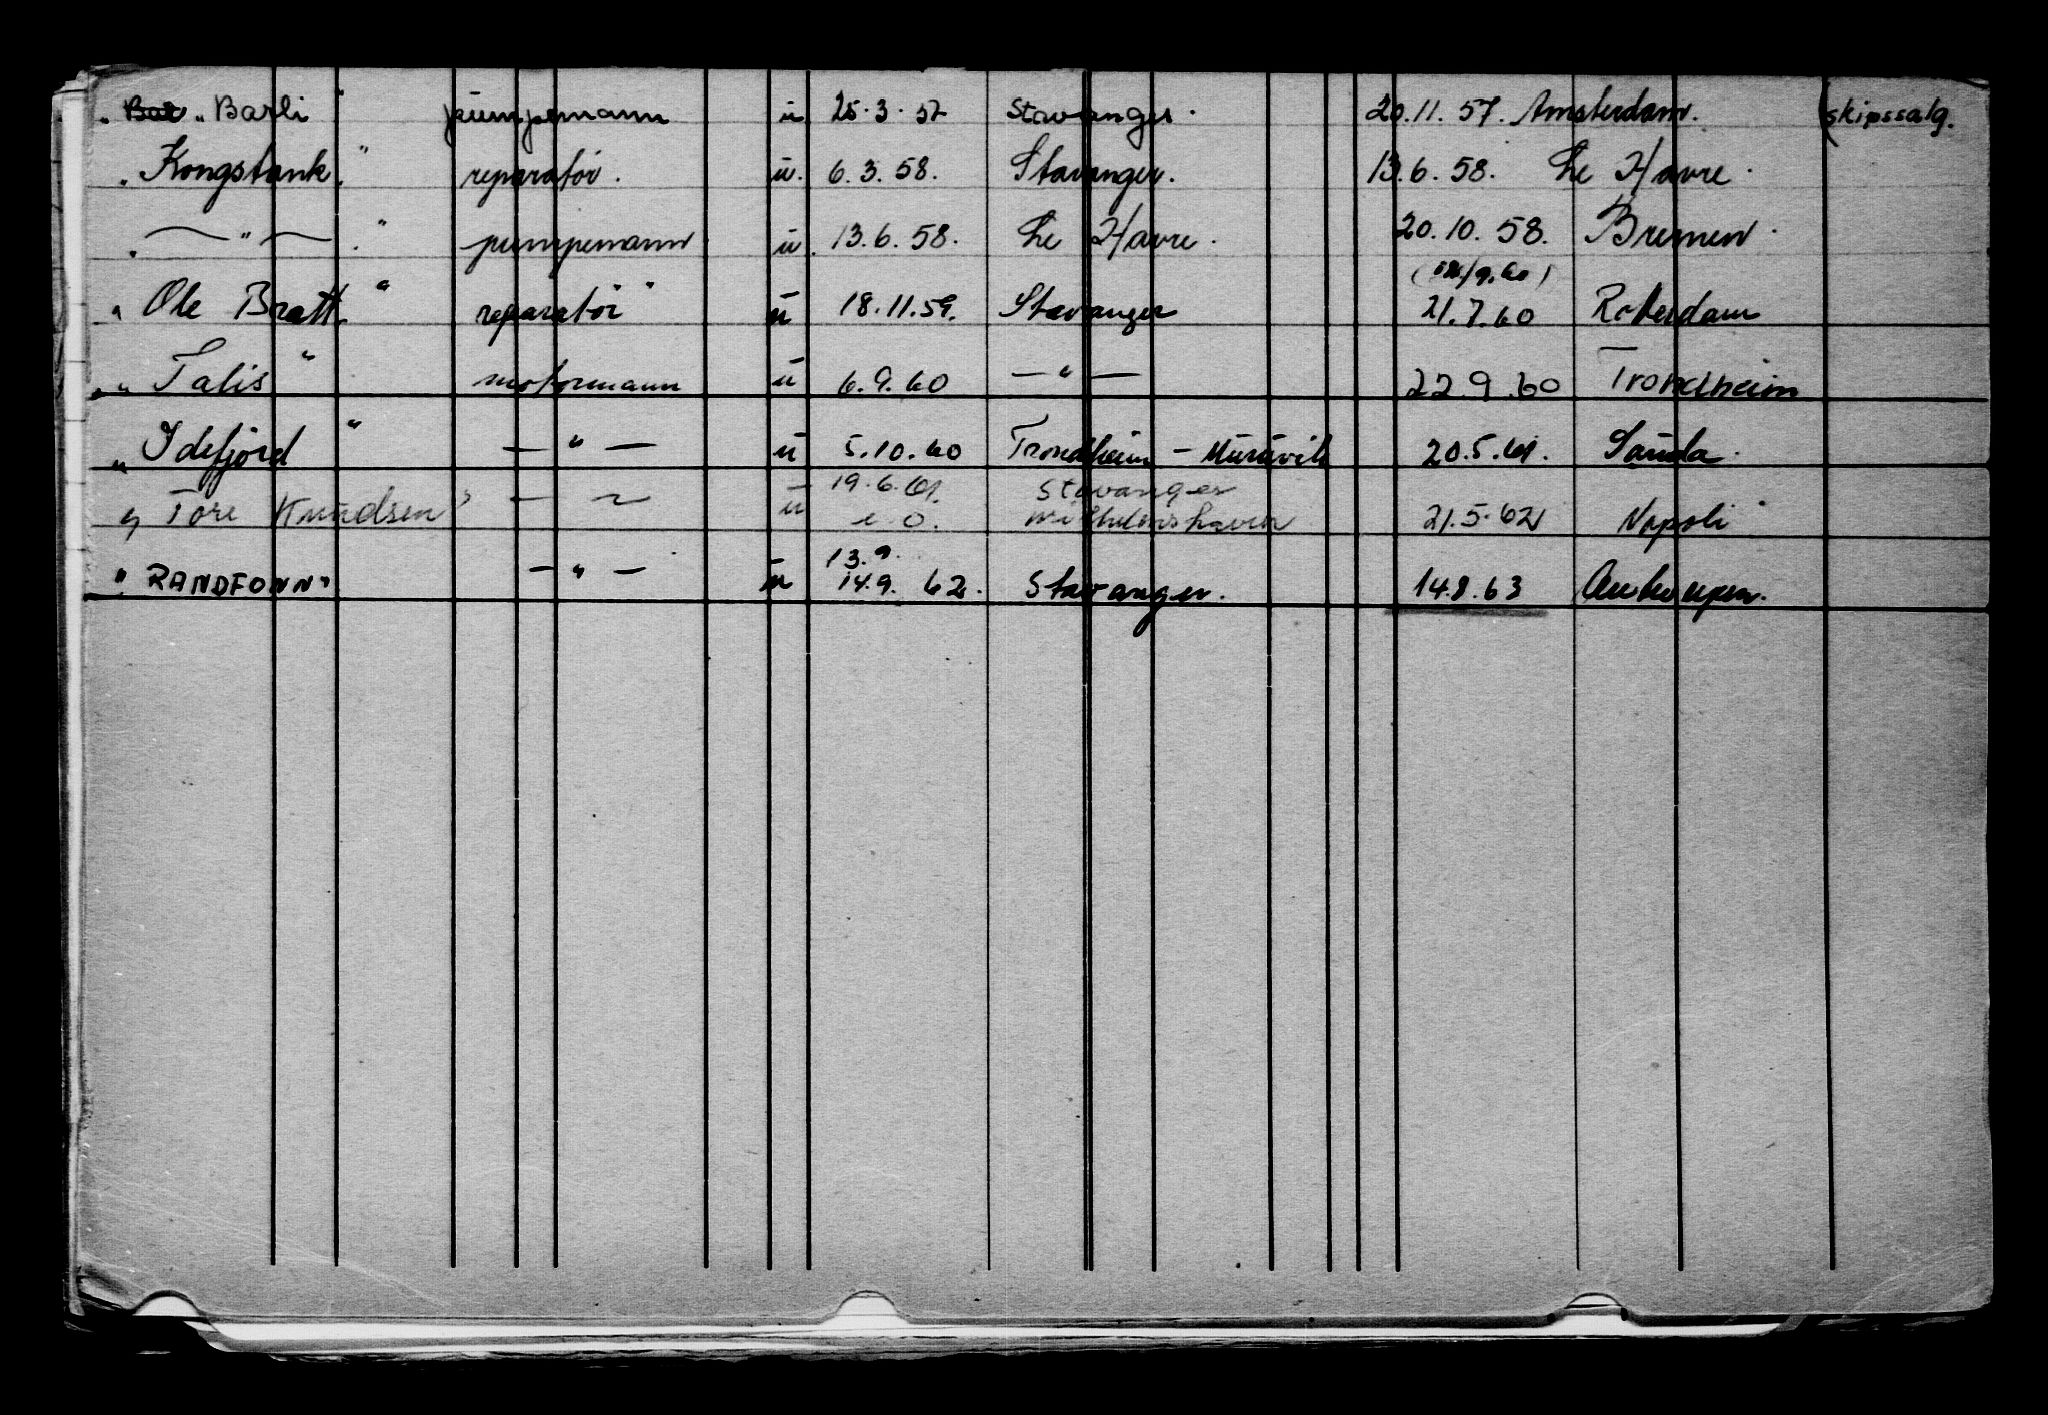 " Barli " pumpemann u 25.3.57 Stavanger. 20.11.57. Amsterdam. (skipssalg.
" Kongstank. " reparatør. u. 6.3.58. Stavanger. 13.6.58. Le Havre.
" — " — . " pumpemann u. 13.6.58. Le Havre. 20.10.58. Bremen.
" Ole Bratt. " reparatør " u 18.11.59. Stavanger 21.7.60 Roterdam
" Talis " motormann u 6.9.60 — " — 22.9.60 Trondheim
" Idefjord " — " — u 5.10.60 Trondheim - Muruvik 20.5.61. Sauda.
" Tore Knudsen " — " — u 19.6.61. Stavanger
e.o. Wilhelmshaven 21.5.62 Napoli
13.9.
" RANDFONN " — " — u 14.9.62. Stavanger. 14.8.63 Antwerpen.